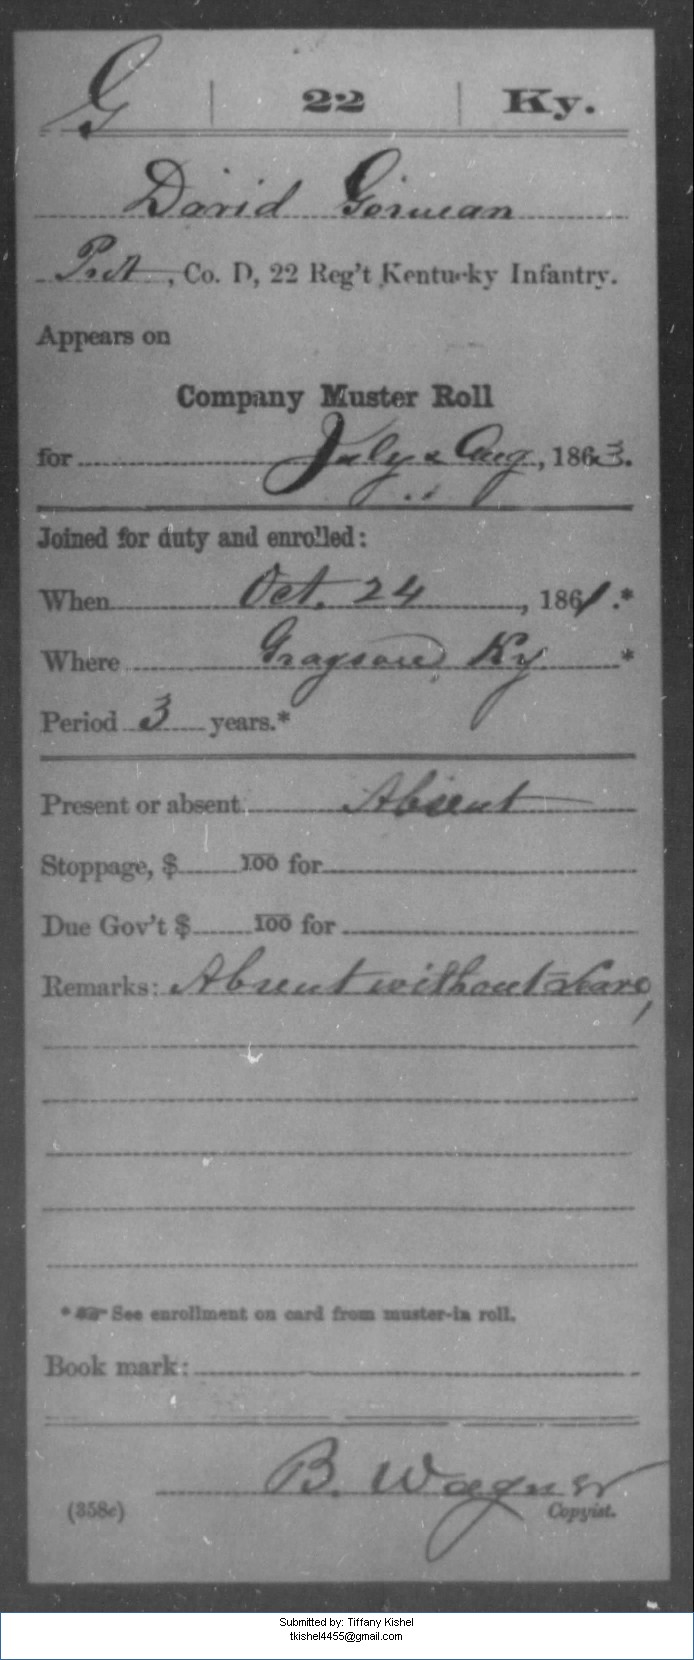 G | 22 | Ky.
David Gorman
Pvt, Co. D, 22 Reg't Kentucky Infantry.
Appears on
Company Muster Roll
for July & Aug, 1863.
Joined for duty and enrolled:
When Oct. 24, 1861.*
Where Grayson, Ky. *
Period 3 years.*
Present or absent Absent
Stoppage, $ 100 for
Due Gov't $ 100 for
Remarks: Absent without leave,
* See enrollment on card from muster-in roll.
Book mark:
B. Wagner
(358c) Copyist.
Submitted by: Tiffany Kishel
tkishel4455@gmail.com